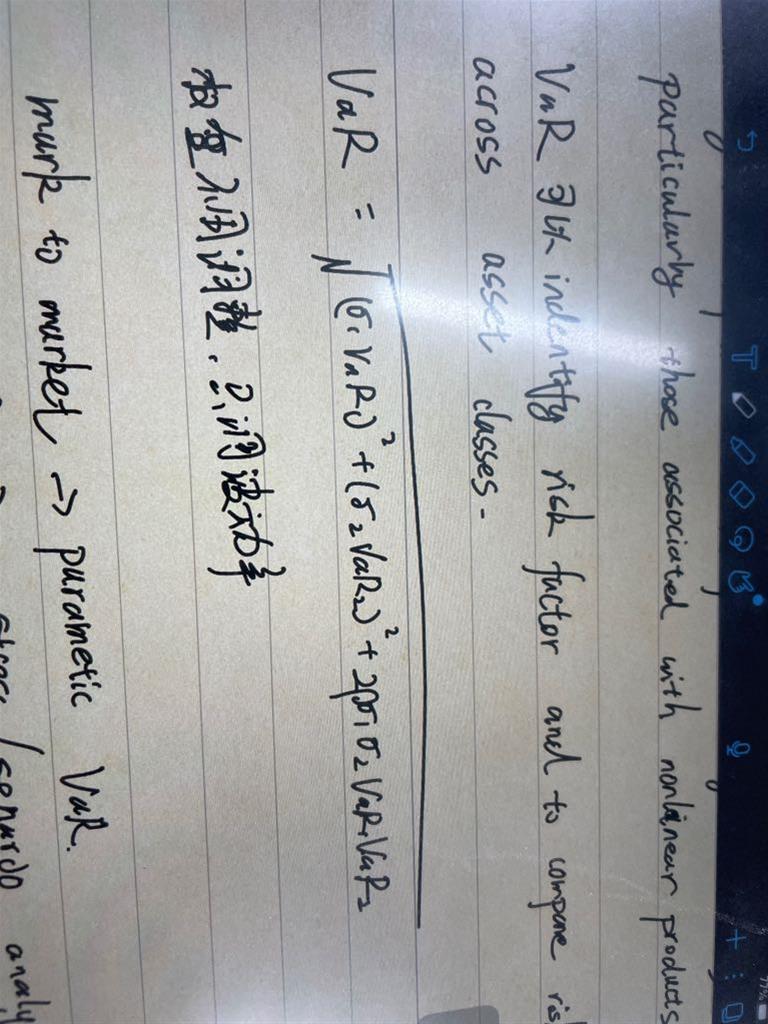 particularly those associated with nonlinear products
VaR 可以 indentify risk factor and to compare ris
across asset classes.
VaR = √(σ₁VaR₁)² + (σ₂VaR₂)² + 2ρσ₁σ₂VaR₁VaR₂
权重不用调整，只调波动率
mark to market → parametic VaR.
stress / scenardo analy
77%